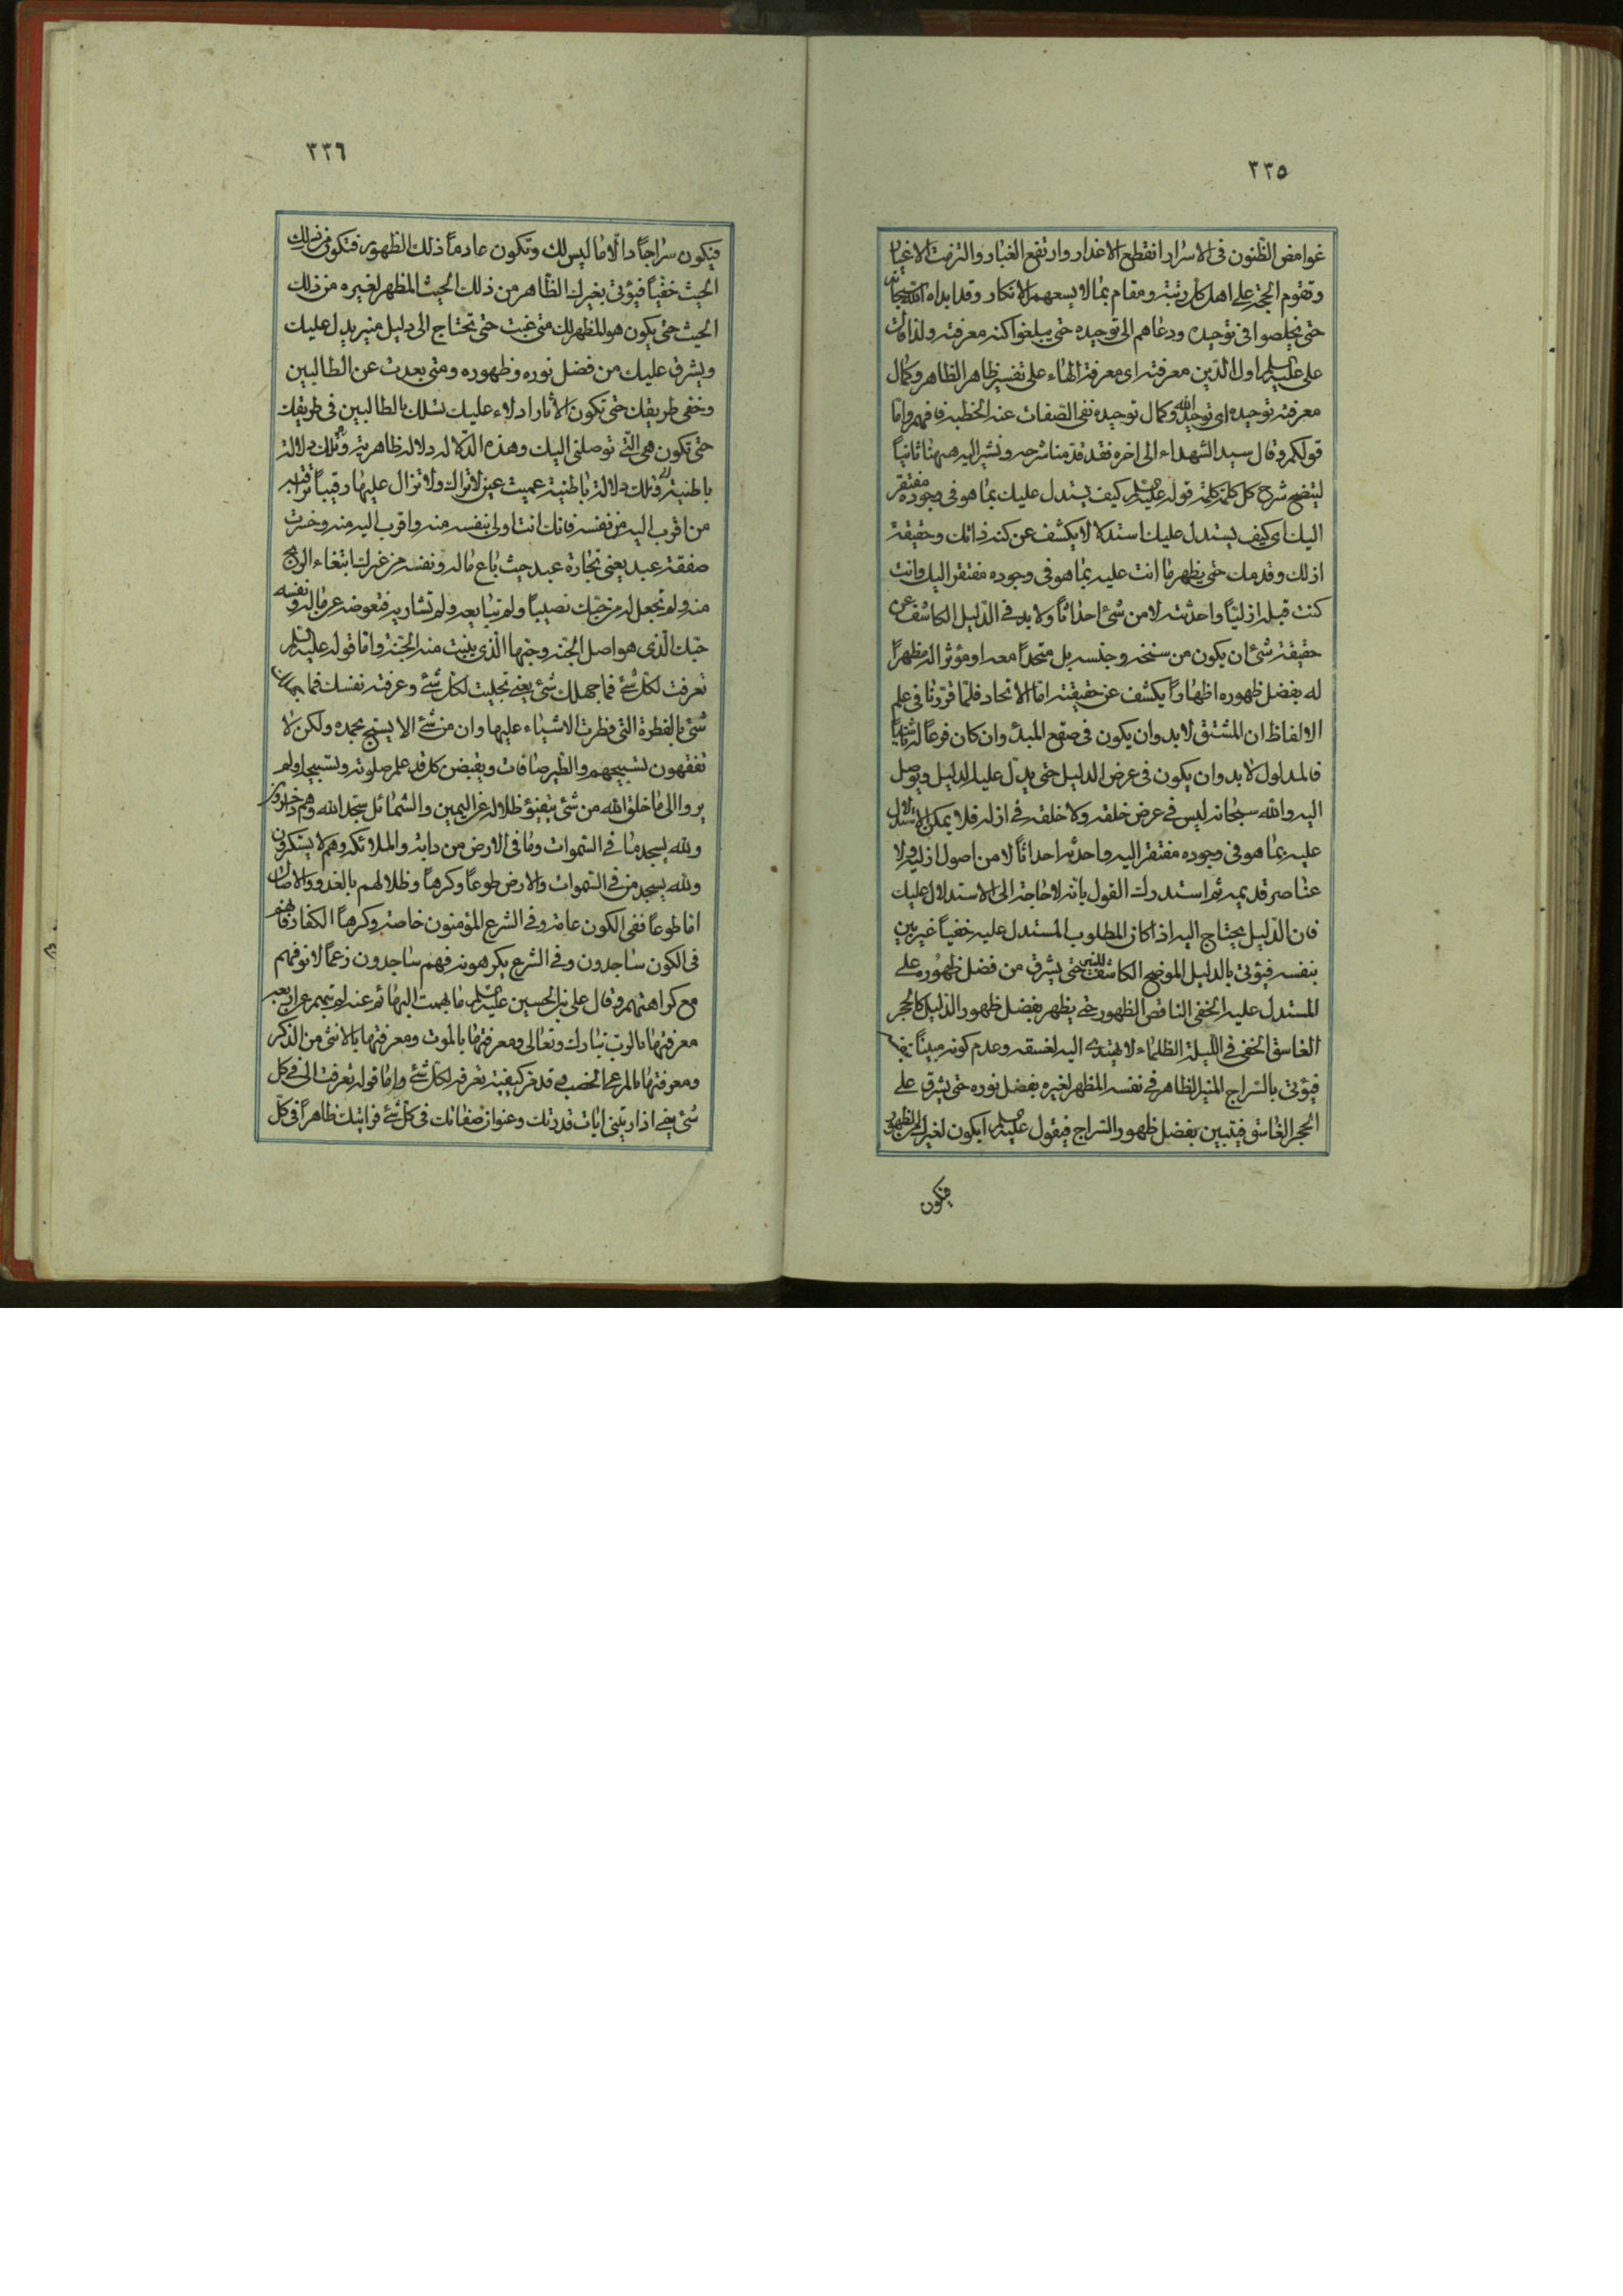 ٣٣٥
غوامض الظنون فى الاسرار انقطع الاعذار وارتفع الغبار والتزمت الاغيار
وتقوم الحجة على اهل كل رتبة ومقام بما لا يسعهم الانكار وقد ابداه الله سبحانه
حتى يخلصوا فى توحيده ودعاهم الى توحيده حتى يبلغوا كنه معرفته ولذا قال
على عليه السلم اول الدين معرفته اى معرفة الهاء على تفسير ظاهر الظاهر وكمال
معرفته توحيده اى توحيد الله وكمال توحيده نفى الصفات عنه الخطبة فافهم واما
قولكم وقال سيد الشهداء الى اخره فقد قدمنا شرحه ونشير اليه ههنا ثانياً
ليتضح شرح كل كلمة كلمة قوله عليه السلم كيف يستدل عليك بما هو فى وجوده مفتقر
اليك اى كيف يستدل عليك استدلالا يكشف عن كنه ذاتك وحقيقة
ازلك وقدمك حتى يظهر ما انت عليه بما هو فى وجوده مفتقر اليك وانت
كنت قبله ازليّاً واحدثته لا من شئ احداثاً ولابد فى الدليل الكاشف عن
حقيقة شئ ان يكون من سنخه وجنسه بل متحداً معه او مؤثرا له مظهراً
له بفضل ظهوره اظهاراً يكشف عن حقيقته اما الاتحاد فلما قررنا فى علم
الالفاظ ان المشتق لابد وان يكون فى صقع المبدئ وان كان فرعاً له
فالمدلول لابد وان يكون فى عرض الدليل حتى يدل عليه الدليل ويوصل
اليه والله سبحانه ليس فى عرض خلقه ولا خلقه فى ازله فلا يمكن الاستدلال
عليه بما هو فى وجوده مفتقر اليه واحدثه احداثاً لا من اصول ازلية ولا
عناصر قديمة ثم استدرك القول بانه لا حاجة الى الاستدلال عليك
فان الدليل يحتاج اليه اذا كان المطلوب المستدل عليه خفياً غير بين
بنفسه فيؤتى بالدليل الموضح الكاشف للشئ حتى يشرق من فضل ظهوره على
المستدل عليه الخفى الناقص الظهور حتى يظهر بفضل ظهور الدليل كالحجر
الغاسق الخفى فى الليلة الظلماء لا يهتدى اليه لغسقه وعدم كونه مبيناً
فيؤتى بالسراج المنير الظاهر فى نفسه المظهر لغيره بفضل نوره حتى يشرق على
الحجر الغاسق فيتبين بفضل ظهور السراج فيقول عليه السلم ايكون لغيرك من الظهور
فيكون
٣٣٦
فيكون سراجاً دالّا ما ليس لك وتكون عادماً ذلك الظهور فتكون من ذلك
الحيث خفياً فيؤتى بغيرك الظاهر من ذلك الحيث المظهر لغيره من ذلك
الحيث حتى يكون هو المظهر لك متى غبت حتى تحتاج الى دليل منير يدل عليك
ويشرق عليك من فضل نوره وظهوره ومتى بعدت عن الطالبين
وخفى طريقك حتى تكون الاثار ادلاء عليك تسلك بالطالبين فى طريقك
حتى تكون هى التى توصلنى اليك وهذه الدلالة دلالة ظاهرية وتلك دلالة
باطنية وتلك دلالة باطنية عميت عين لا تراك ولا تزال عليها رقيباً تراقبه
من اقرب اليه من نفسه فانك انت اولى بنفسه منه واقرب اليه منه وخسرت
صفقة عبد يعنى تجارة عبد حيث باع ماله ونفسه من غيرك ابتغاء الربح
منه ولم تجعل له من حبك نصيباً ولم تبايعه ولم تشاريه فتعوضه عن ماله ونفسه
حبك الذى هو اصل الجنة وحبها الذى ينبت منه الجنة واما قوله عليه السلم
تعرفت لكل شئ فما جهلك شئ يعنى تجليت لكل شئ وعرفته نفسك فما جهلك
شئ بالفطرة التى فطرت الاشياء عليها وان من شئ الا يسبح بحمده ولكن لا
تفقهون تسبيحهم والطير صافات ويقبضن كل قد علم صلوته وتسبيحه اولم
يروا الى ما خلق الله من شئ يتفيؤ ظلاله عن اليمين والشمائل سجدا لله وهم داخرون
ولله يسجد ما فى السموات وما فى الارض من دابة والملائكة وهم لا يستكبرون
ولله يسجد من فى السموات والارض طوعاً وكرهاً وظلالهم بالغدو والاصال
اما طوعاً ففى الكون عامة وفى الشرع المؤمنون خاصة وكرهاً الكفار فانهم
فى الكون ساجدون وفى الشرع يكرهونه فهم ساجدون زعماً لانوفهم
مع كراهتهم وقال على بن الحسين عليه السلم ما بهمت البهائم عنه لم تبهم عن اربعة
معرفتها بالرب تبارك وتعالى ومعرفتها بالموت ومعرفتها بالانثى من الذكر
ومعرفتها بالمرعى الخصب وقد مر كيفية تعرفه لكل شئ واما قوله تعرفت الى فى كل
شئ يعنى اذ اريتنى ايات قدرتك وعنوان صفاتك فى كل شئ فرايتك ظاهراً فى كل